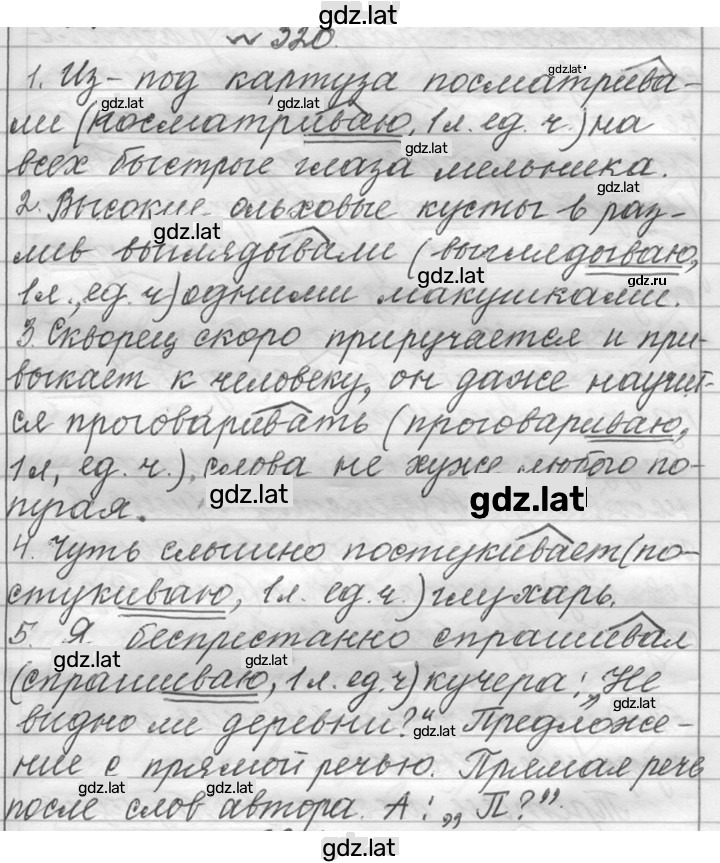 gdz.lat
№ 320.
1. Из-под картуза посматрива-
ли (посматриваю, 1 л. ед. ч.) на
всех быстрые глаза мельника.
2. Высокие ольховые кусты в раз-
лив выглядывали (выглядываю,
1 л., ед. ч.) одними макушками.
3. Скворец скоро приручается и при-
выкает к человеку, он даже научит-
ся проговаривать (проговариваю,
1 л, ед. ч.), слова не хуже любого по-
пугая.
4. Чуть слышно постукивает (по-
стукиваю, 1 л. ед. ч.) глухарь.
5. Я беспрестанно спрашивал
(спрашиваю, 1 л. ед. ч) кучера: „Не
видно ли деревни?“ Предложе-
ние с прямой речью. Прямая речь
после слов автора. А: „П?“.
gdz.lat
gdz.lat
gdz.lat
gdz.lat
gdz.lat
gdz.lat
gdz.lat
gdz.lat
gdz.ru
gdz.lat
gdz.lat
gdz.lat
gdz.lat
gdz.lat
gdz.lat
gdz.lat
gdz.lat